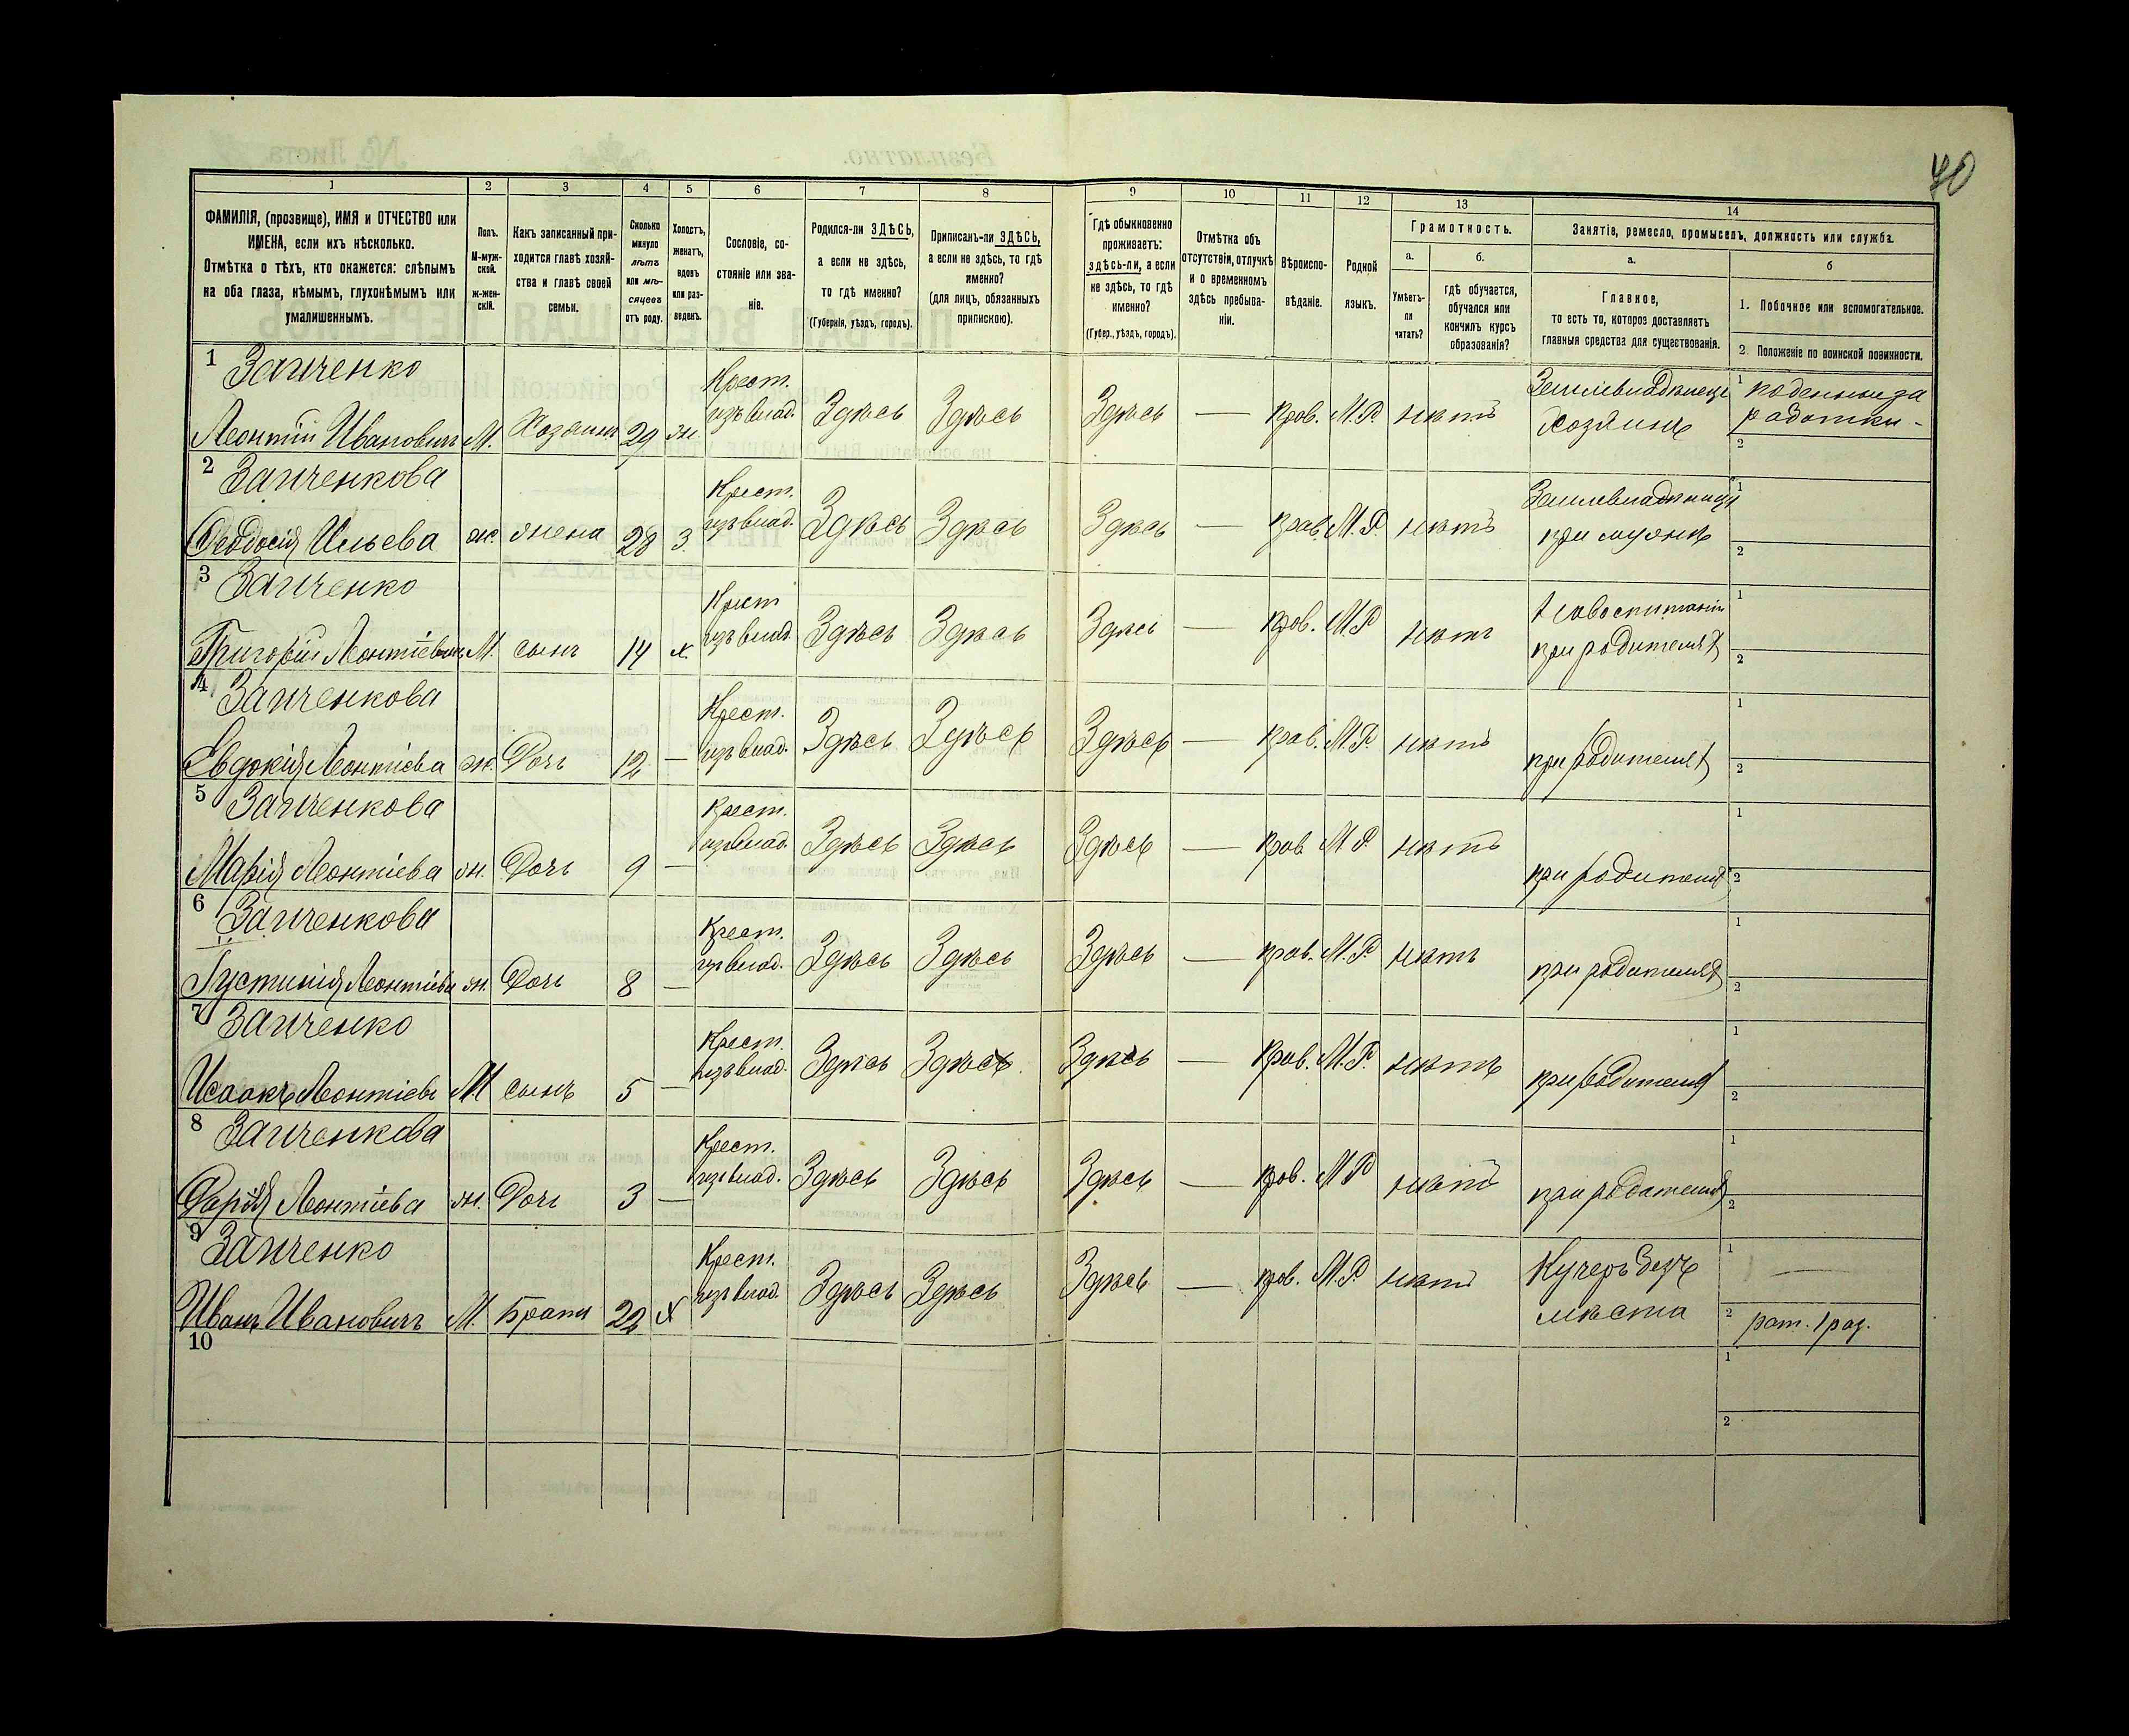 40
1 2 3 4 5 6 7 8 9 10 11 12 13 14
ФАМИЛІЯ, (прозвище), ИМЯ и ОТЧЕСТВО или
ИМЕНА, если ихъ нѣсколько.
Отмѣтка о тѣхъ, кто окажется: слѣпымъ
на оба глаза, нѣмымъ, глухонѣмымъ или
умалишеннымъ.
Полъ.
М-муж-
ской.
ж-жен-
скій.
Какъ записанный при-
ходится главѣ хозяй-
ства и главѣ своей
семьи.
Сколько
минуло
лѣтъ
или мѣ-
сяцевъ
отъ роду.
Холостъ,
женатъ,
вдовъ
или раз-
веденъ.
Сословіе, со-
стояніе или зва-
ніе.
Родился-ли ЗДѢСЬ,
а если не здѣсь,
то гдѣ именно?
(Губернія, уѣздъ, городъ).
Приписанъ-ли ЗДѢСЬ,
а если не здѣсь, то гдѣ
именно?
(для лицъ, обязанныхъ
припискою).
Гдѣ обыкновенно
проживаетъ:
здѣсь-ли, а если
не здѣсь, то гдѣ
именно?
(Губер., уѣздъ, городъ).
Отмѣтка объ
отсутствіи, отлучкѣ
и о временномъ
здѣсь пребыва-
ніи.
Вѣроиспо-
вѣданіе.
Родной
языкъ.
Грамотность.
а.
Умѣетъ-
ли
читать?
б.
гдѣ обучается,
обучался или
кончилъ курсъ
образованія?
Занятіе, ремесло, промыселъ, должность или служба.
а.
Главное,
то есть то, которое доставляетъ
главныя средства для существованія.
б
1. Побочное или вспомогательное.
2. Положеніе по воинской повинности.
1 Заиченко Крест. Земlевладѣлецъ 1 поденныи за
Леонтій Ивановичъ М. Хозяинъ 29 ж. изъ влад. Здѣсь Здѣсь Здѣсь — прав. М.Р. нѣтъ Хозяинъ работки -
2
2 Заиченкова Крест. 1
Феодосія Ильева ж. жена 28 З. изъ влад. Здѣсь Здѣсь Здѣсь — прав. М.Р. нѣтъ при мужѣ 2
3 Заиченко Крест 1
Григорій Леонтіевичъ М. сынъ 14 х. изъ влад. Здѣсь Здѣсь Здѣсь — прав. М.Р нѣтъ при родителяхъ 2
4 Заиченкова Крест. 1
Евдокія Леонтіева ж. Дочь 12 — изъ влад. Здѣсь Здѣсь Здѣсь — прав. М.Р. нѣтъ при родителяхъ 2
5 Заиченкова Крест. 1
Марія Леонтіева ж. Дочь 9 — изъ влад. Здѣсь Здѣсь Здѣсь — прав. М.Р. нѣтъ при родителяхъ 2
6 Заиченкова Крест. 1
Іустинія Леонтіева ж. Дочь 8 — изъ влад. Здѣсь Здѣсь Здѣсь — прав. М.Р. нѣтъ при родителяхъ 2
7 Заиченко Крест. 1
Исаакъ Леонтіевъ М сынъ 5 — изъ влад. Здѣсь Здѣсь Здѣсь — прав. М.Р. нѣтъ при родителяхъ 2
8 Заиченкова Крест. 1
Дарія Леонтіева ж. Дочь 3 — изъ влад. Здѣсь Здѣсь Здѣсь — прав. М.Р нѣтъ при родителяхъ 2
9 Заиченко Крест. Кучеръ безъ 1 —
Иванъ Ивановичъ М. Братъ 22 х изъ влад. Здѣсь Здѣсь Здѣсь — прав. М.Р. нѣтъ мѣста 2 рат. 1 раз.
10 1
2